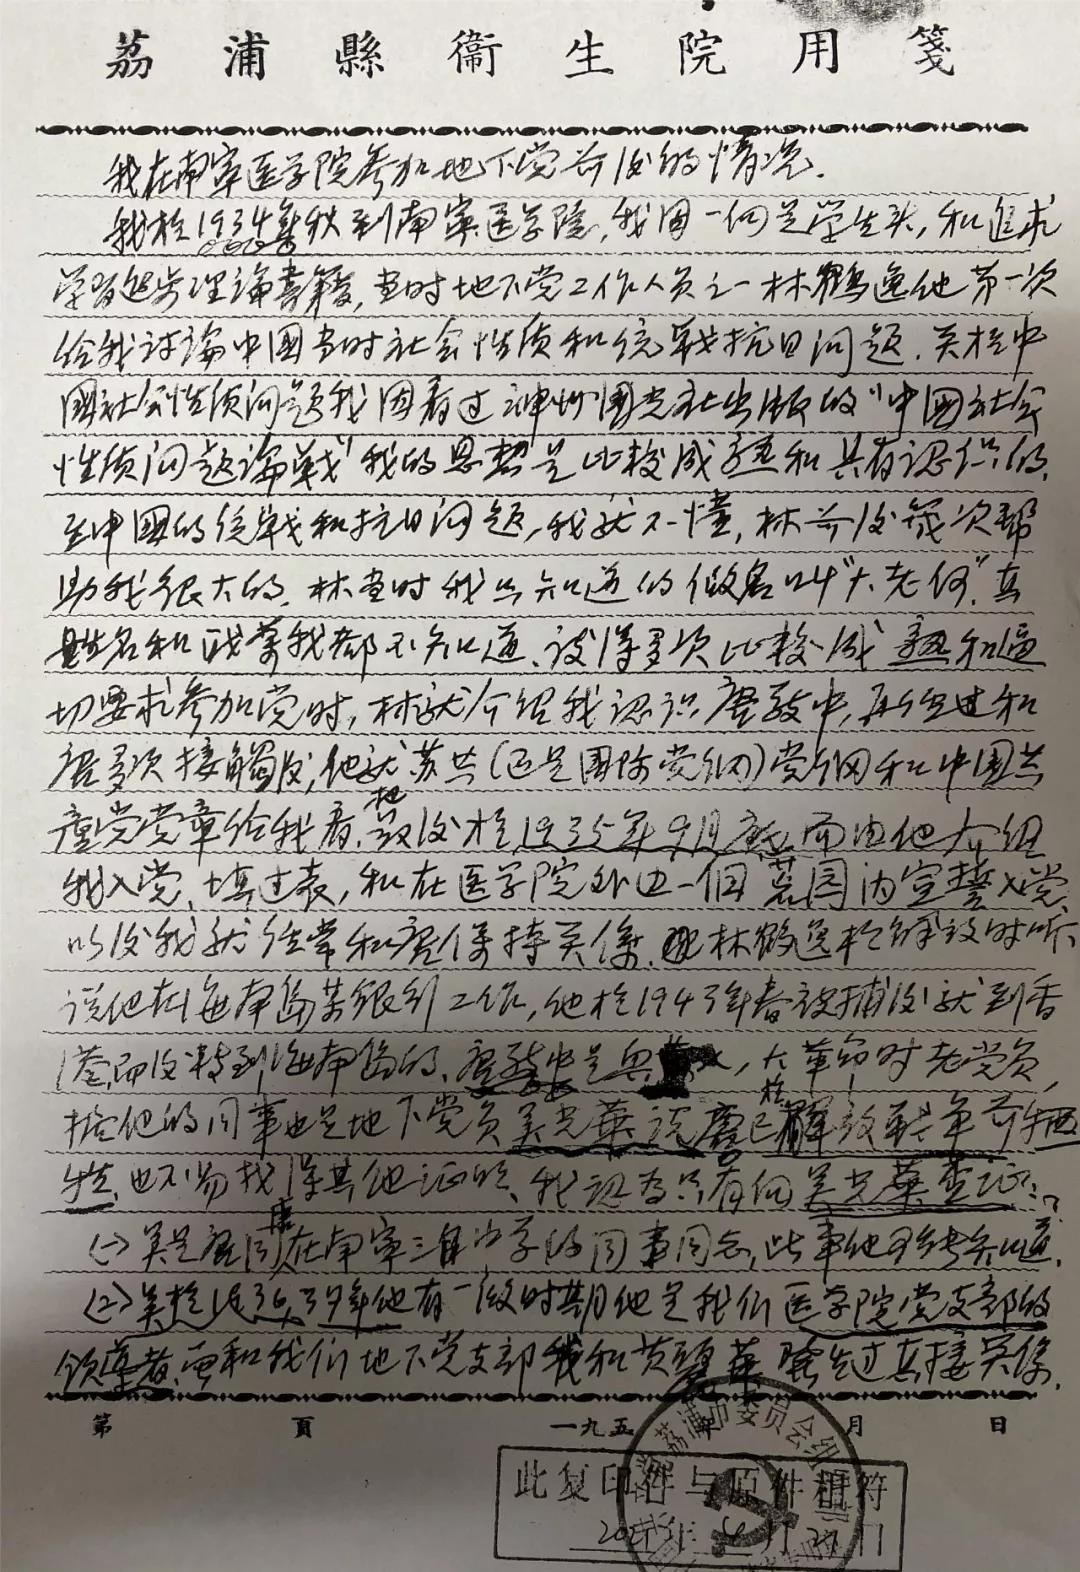 荔浦縣衞生院用箋
我在南寧医学院参加地下党前后的情况.
我于1934年秋到南寧医学院,我因一向是学生头,和追求
学習進步理論書籍,当时地下党工作人员之一林鶴逸他第一次
给我讨論中国当时社会性质和统战抗日问题.关于中
国社会性质问题我因看过神州国光社出版的"中国社会
性质问题論战"我的思想是比较成熟和具有认识的,
至中国的统战和抗日问题,我就不懂,林前后几次帮
助我很大的.林当时我只知道的假名叫"大老何".真
姓名和职業我都不知道.谈得多次比较成熟和逼
切要求参加党时,林就介绍我认识唐致中,再经过和
唐多次接觸后,他就苏共(还是国际党纲)党纲和中国共
產党党章给我看.最后于1935年9月底而由他介绍
我入党.填过表,和在医学院外边一個墓园内宣誓入党.
以后我就经常和唐保持关係.林鶴逸于解放时听
说他在海南岛某银行工作,他于1943年春被捕后就到香
港,而后转到海南岛的.唐致中是,大革命时老党员,
据他的同事也是地下党员吴光華说唐已于解放战争前牺
牲.也不易找得其他证明.我认为只有向吴光華查证:
(一)吴是唐同在南寧三民中学的同事同志,此事他可能知道.
(2)吴于民36,37年他有一段时期他是我们医学院党支部的
领導者.和我们地下党支部我和黄華發生过直接关係.
第 頁 一九五 年 月 日
荔浦市委员会组
此复印件与原件相符
2021年4月27日